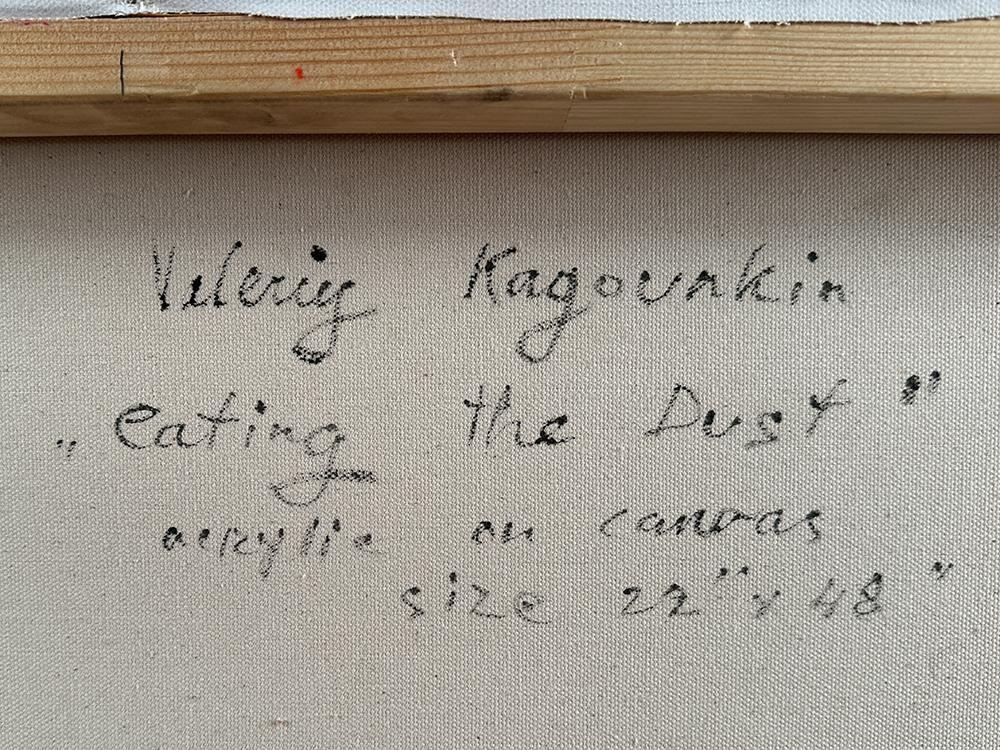 Valeriy Kagounkin
„eating the Dust"
acrylic on canvas
size 22" x 48"